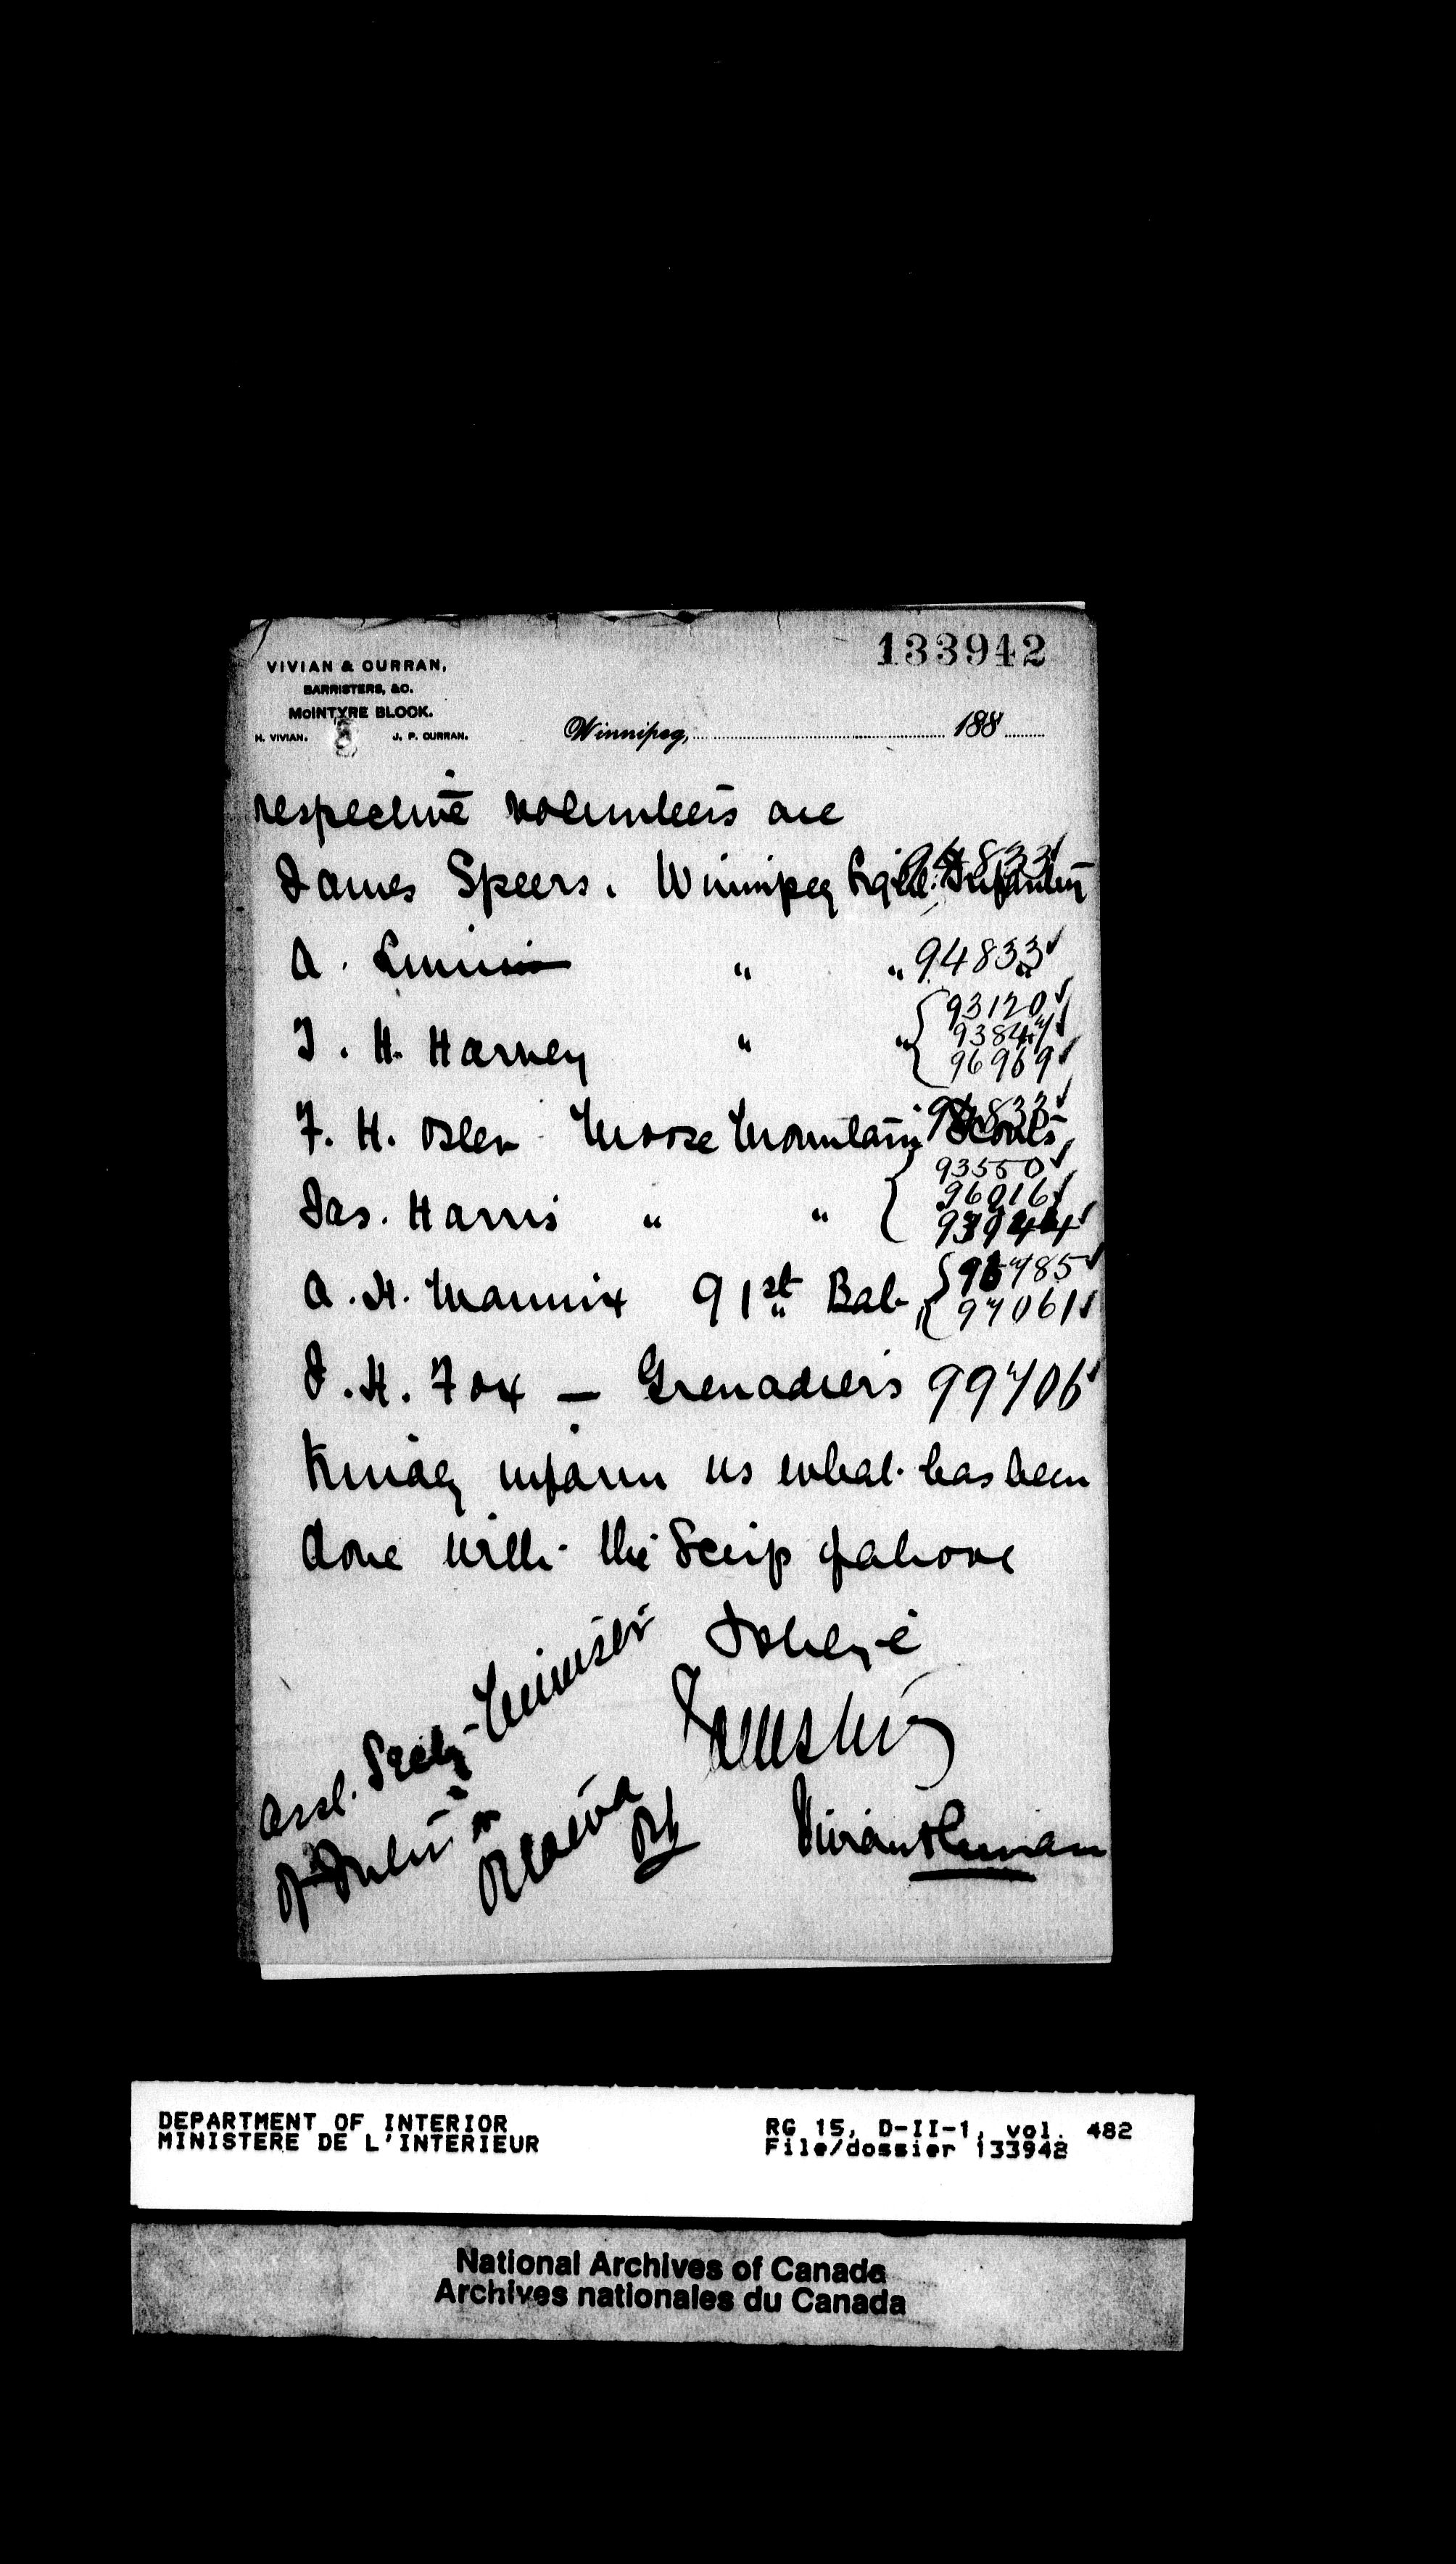 133942
VIVIAN & CURRAN,
BARRISTERS, &C.
McINTYRE BLOCK.
H. VIVIAN. J. P. CURRAN.
Winnipeg, 188
respective volunteers are
94833
James Speers. Winnipeg Light Infantry
A. " " 94833
93120
T. H. Harvey " " 93847
96969
94833
F. H. Osler Moose Mountain Scouts
93550
96016
Jas. Harris " " 93944
A. H. Mannix 91st Bat 96785
97061
J. H. Fox — Grenadiers 99706
Kindly inform us what has been
done with the Scrip of above
To be
Yours truly
Vivian & Curran
Asst. Secty Minister
of Interior
Ottawa
DEPARTMENT OF INTERIOR
MINISTERE DE L'INTERIEUR
RG 15, D-II-1, vol. 482
File/dossier 133942
National Archives of Canada
Archives nationales du Canada